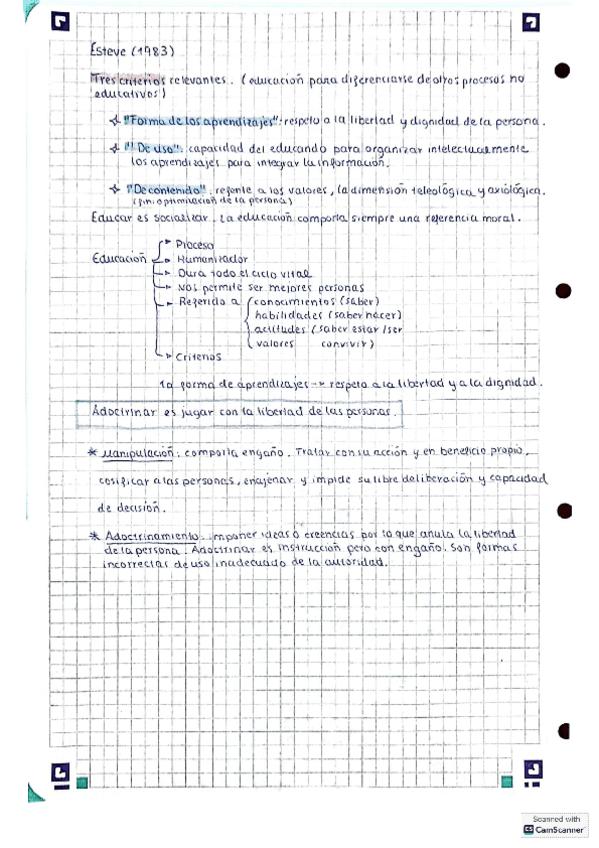 Esteve (1983)
Tres criterios relevantes. (educación para diferenciarse de otros procesos no
educativos)
"Forma de los aprendizajes": respeto a la libertad y dignidad de la persona.
"De uso": capacidad del educando para organizar intelectualmente
los aprendizajes para integrar la información.
"De contenido": referente a los valores, la dimensión teleológica y axiológica.
(fin: optimización de la persona)
Educar es socializar. La educación comporta siempre una referencia moral.
Proceso
Educación Humanizador
Dura todo el ciclo vital
Nos permite ser mejores personas
Referido a conocimientos (saber)
habilidades (saber hacer)
actitudes (saber estar/ser
valores convivir)
Criterios
1a forma de aprendizajes → respeto a la libertad y a la dignidad.
Adoctrinar es jugar con la libertad de las personas.
* Manipulación: comporta engaño. Tratar con su acción y en beneficio propio,
cosificar a las personas, enajenar y impide su libre deliberación y capacidad
de decisión.
* Adoctrinamiento: imponer ideas o creencias por lo que anula la libertad
de la persona. Adoctrinar es instrucción pero con engaño. Son formas
incorrectas de uso inadecuado de la autoridad.
Scanned with
CS CamScanner